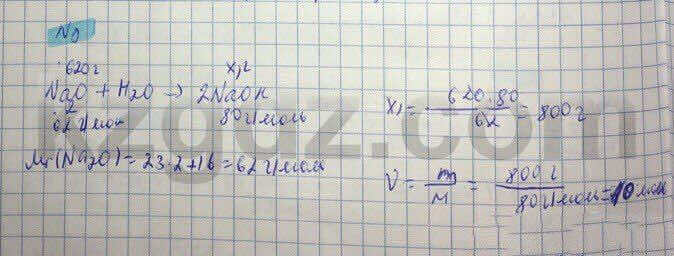 №9
620г x,г
Na₂O + H₂O → 2NaOH
62 г/моль 80 г/моль
Mr(Na₂O) = 23·2+16 = 62 г/моль
x₁ = 620·80 / 62 = 800 г
ν = m / M = 800 г / 80 г/моль = 10 моль